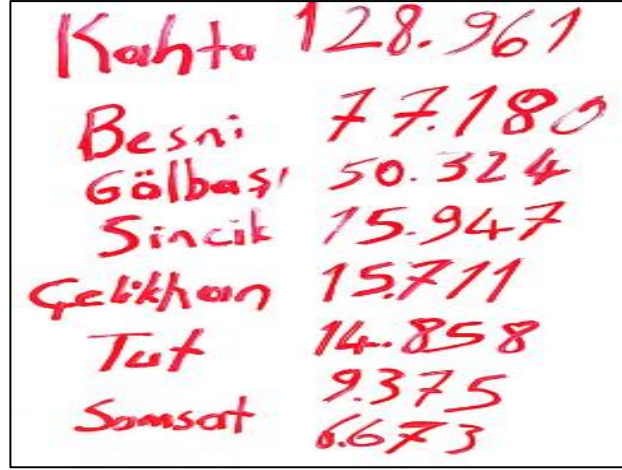 Kahta 128.961
Besni 77.180
Gölbaşı 50.324
Sincik 15.947
Çelikhan 15.711
Tut 14.858
9.375
Samsat 6.673